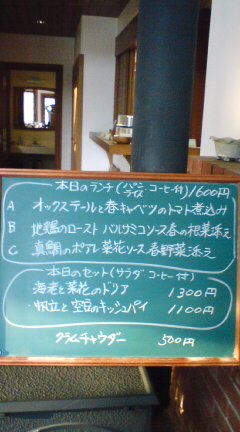 本日のランチ(パン ライス コーヒー付)1600円
A オックステールと春キャベツのトマト煮込み
B 地鶏のロースト バルサミコソース春の根菜添え
C 真鯛のポアレ 菜花ソース春野菜添え
本日のセット(サラダ コーヒー付)
海老と菜花のドリア 1300円
帆立と空豆のキッシュパイ 1100円
クラムチャウダー 500円